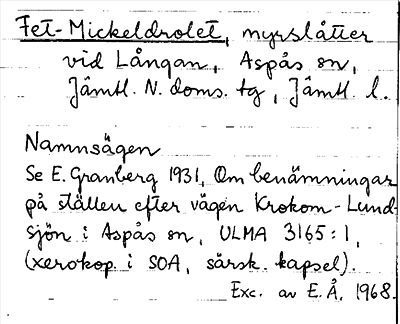 Fet-Mickeldrolet, myrslåtter
vid Långan, Aspås sn,
Jämtl. N. doms. tg, Jämtl. l.
Namnsägen
Se E. Granberg 1931, Om benämningar
på ställen efter vägen Krokom-Lund-
sjön i Aspås sn, ULMA 3165:1,
(xerokop. i SOA, särsk. kapsel).
Exc. av E.Å. 1968.